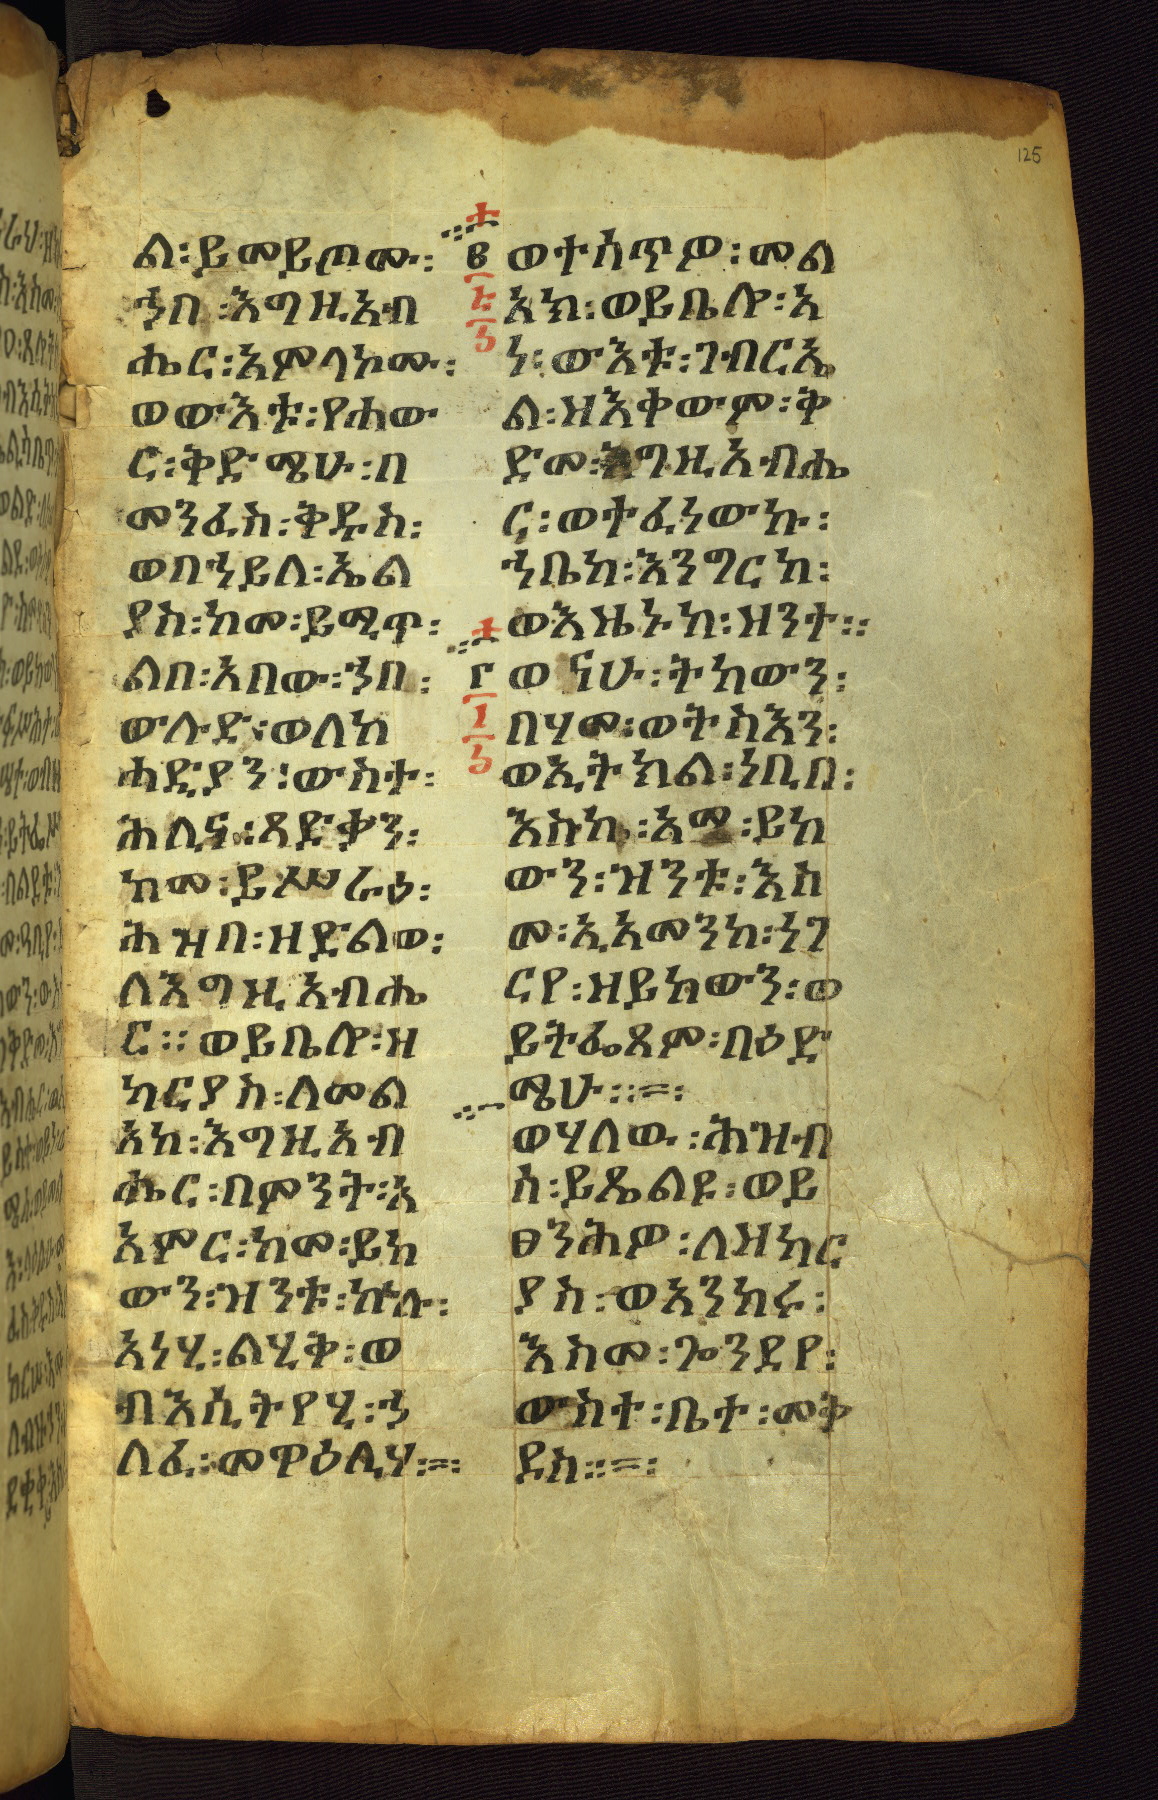 125
ል፡ይመይጦሙ፡
ኀበ፡እግዚአብ
ሔር፡አምላኮሙ፡
ወውእቱ፡የሐው
ር፡ቅድሜሁ፡በ
መንፈስ፡ቅዱስ፡
ወበኀይለ፡ኤል
ያስ፡ከመ፡ይሚጥ፡
ልበ፡አበው፡ኀበ፡
ውሉድ፡ወለከ
ሐዲያን፡ውስተ፡
ሕሊና፡ጻድቃን፡
ከመ፡ይሥራዕ፡
ሕዝበ፡ዘድልው፡
ለእግዚአብሔ
ር፡፡ወይቤሎ፡ዘ
ካርያስ፡ለመል
አከ፡እግዚአብ
ሔር፡በምንት፡አ
አምር፡ከመ፡ይከ
ውን፡ዝንቱ፡ኵሉ፡
አነሂ፡ልሂቅ፡ወ
ብእሲትየሂ፡ኀ
ለፈ፡መዋዕሊሃ፡=፡
ወተሰጥዎ፡መል
አክ፡ወይቤሎ፡አ
ነ፡ውእቱ፡ገብርኤ
ል፡ዘእቀውም፡ቅ
ድመ፡እግዚአብሔ
ር፡ወተፈነውኩ፡
ኀቤከ፡እንግርከ፡
ወእዜኑከ፡ዘንተ፡፡
ወናሁ፡ትከውን፡
በሃመ፡ወትስእን፡
ወኢትክል፡ነቢበ፡
እስከ፡አመ፡ይከ
ውን፡ዝንቱ፡እስ
መ፡ኢአመንከ፡ነገ
ርየ፡ዘይከውን፡ወ
ይትፌጸም፡በዕድ
ሜሁ፡፡=፡
ወሃለው፡ሕዝብ
ሰ፡ይጼልዩ፡ወይ
ፀንሕዎ፡ለዘካር
ያስ፡ወአንከሩ፡
እስመ፡ጐንደየ፡
ውስተ፡ቤተ፡መቅ
ደስ፡፡=፡